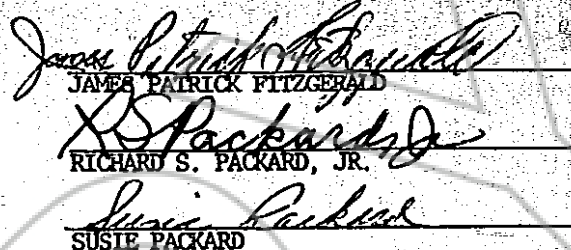 James Patrick Fitzgerald
JAMES PATRICK FITZGERALD
R S Packard Jr
RICHARD S. PACKARD, JR.
Susie Packard
SUSIE PACKARD